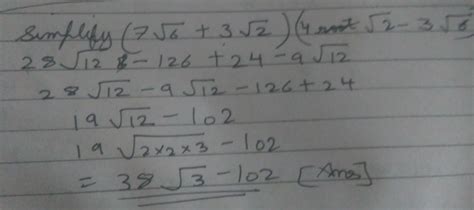 Simplify (7√6 + 3√2)(4 √2 - 3√6)
28√12 - 126 + 24 - 9√12
28√12 - 9√12 - 126 + 24
19√12 - 102
19√2×2×3 - 102
= 38√3 - 102 [Ans]